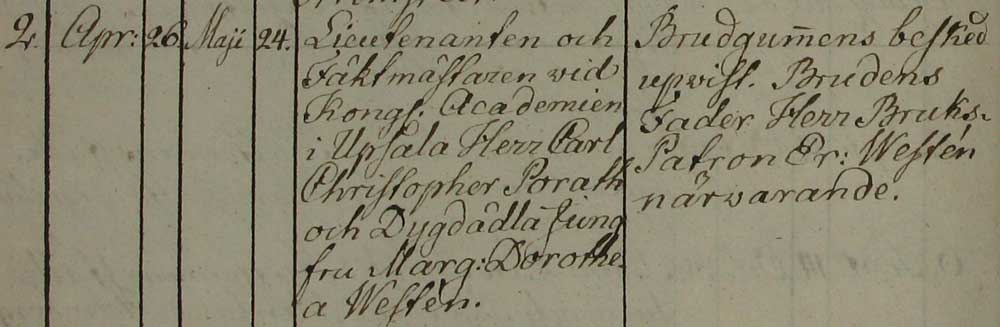 2. Apr: 26. Maji 24. Lieutenanten och
Fäktmästaren vid
Kongl. Academien
i Upsala Herr Carl
Christopher Porath
och Dygdädla Jung
fru Marg: Dorothe-
a Westén.
Brudgum̄ens besked
upvist. Brudens
Fader Herr Bruks-
Patron Er: Westén
närvarande.